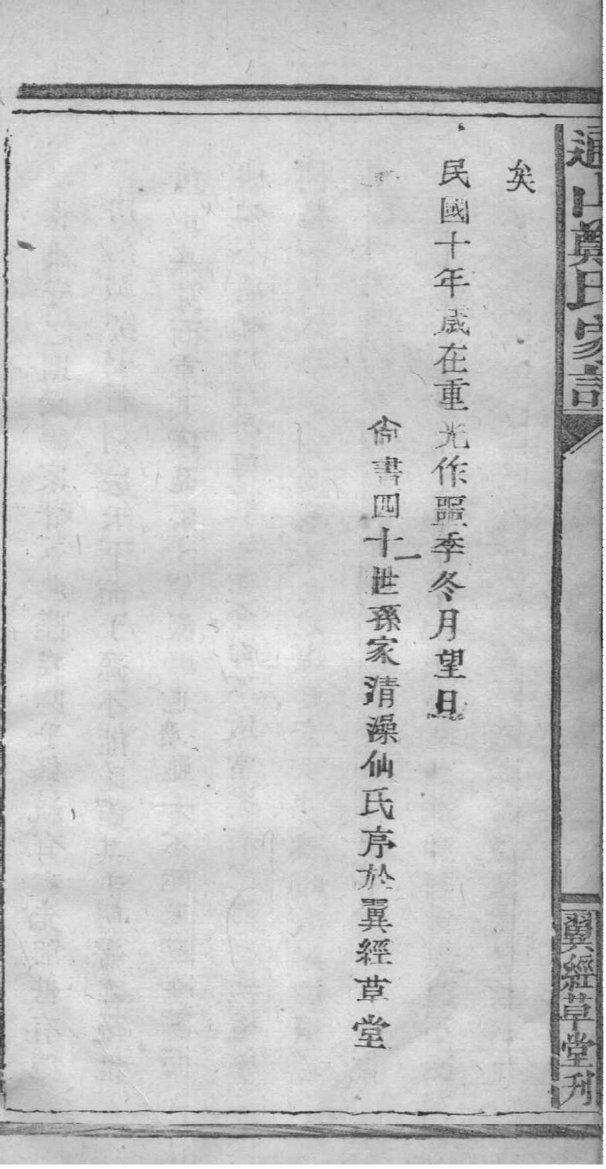 通山鄭氏家譜
翼經草堂刋
矣
民國十年歲在重光作噩季冬月望日
尙書四十一世孫家清澡仙氏序於翼經草堂